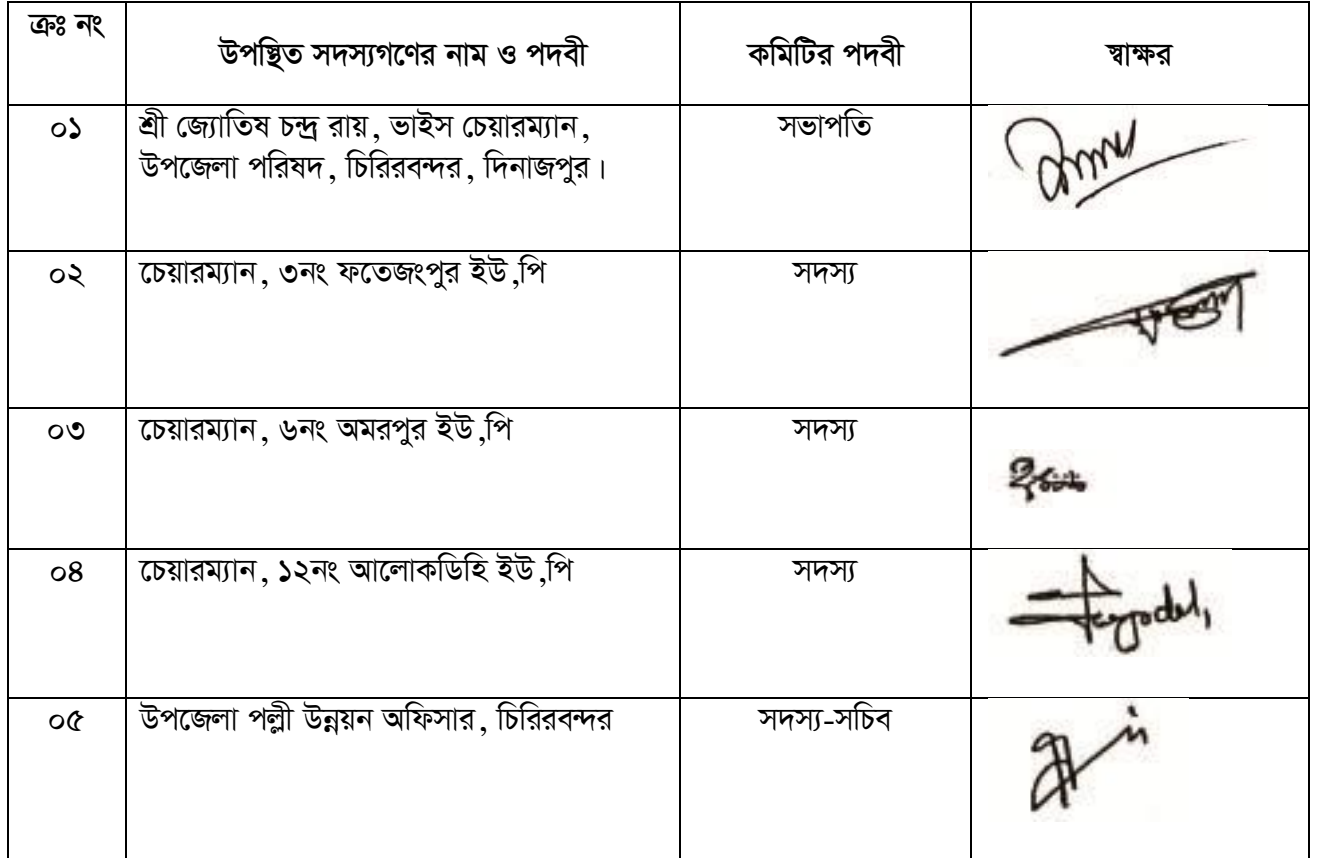 ক্রঃ নং
উপস্থিত সদস্যগণের নাম ও পদবী
কমিটির পদবী
স্বাক্ষর
০১
শ্রী জ্যোতিষ চন্দ্র রায়, ভাইস চেয়ারম্যান,
উপজেলা পরিষদ, চিরিরবন্দর, দিনাজপুর।
সভাপতি
০২
চেয়ারম্যান, ৩নং ফতেজংপুর ইউ,পি
সদস্য
০৩
চেয়ারম্যান, ৬নং অমরপুর ইউ,পি
সদস্য
০৪
চেয়ারম্যান, ১২নং আলোকডিহি ইউ,পি
সদস্য
০৫
উপজেলা পল্লী উন্নয়ন অফিসার, চিরিরবন্দর
সদস্য-সচিব